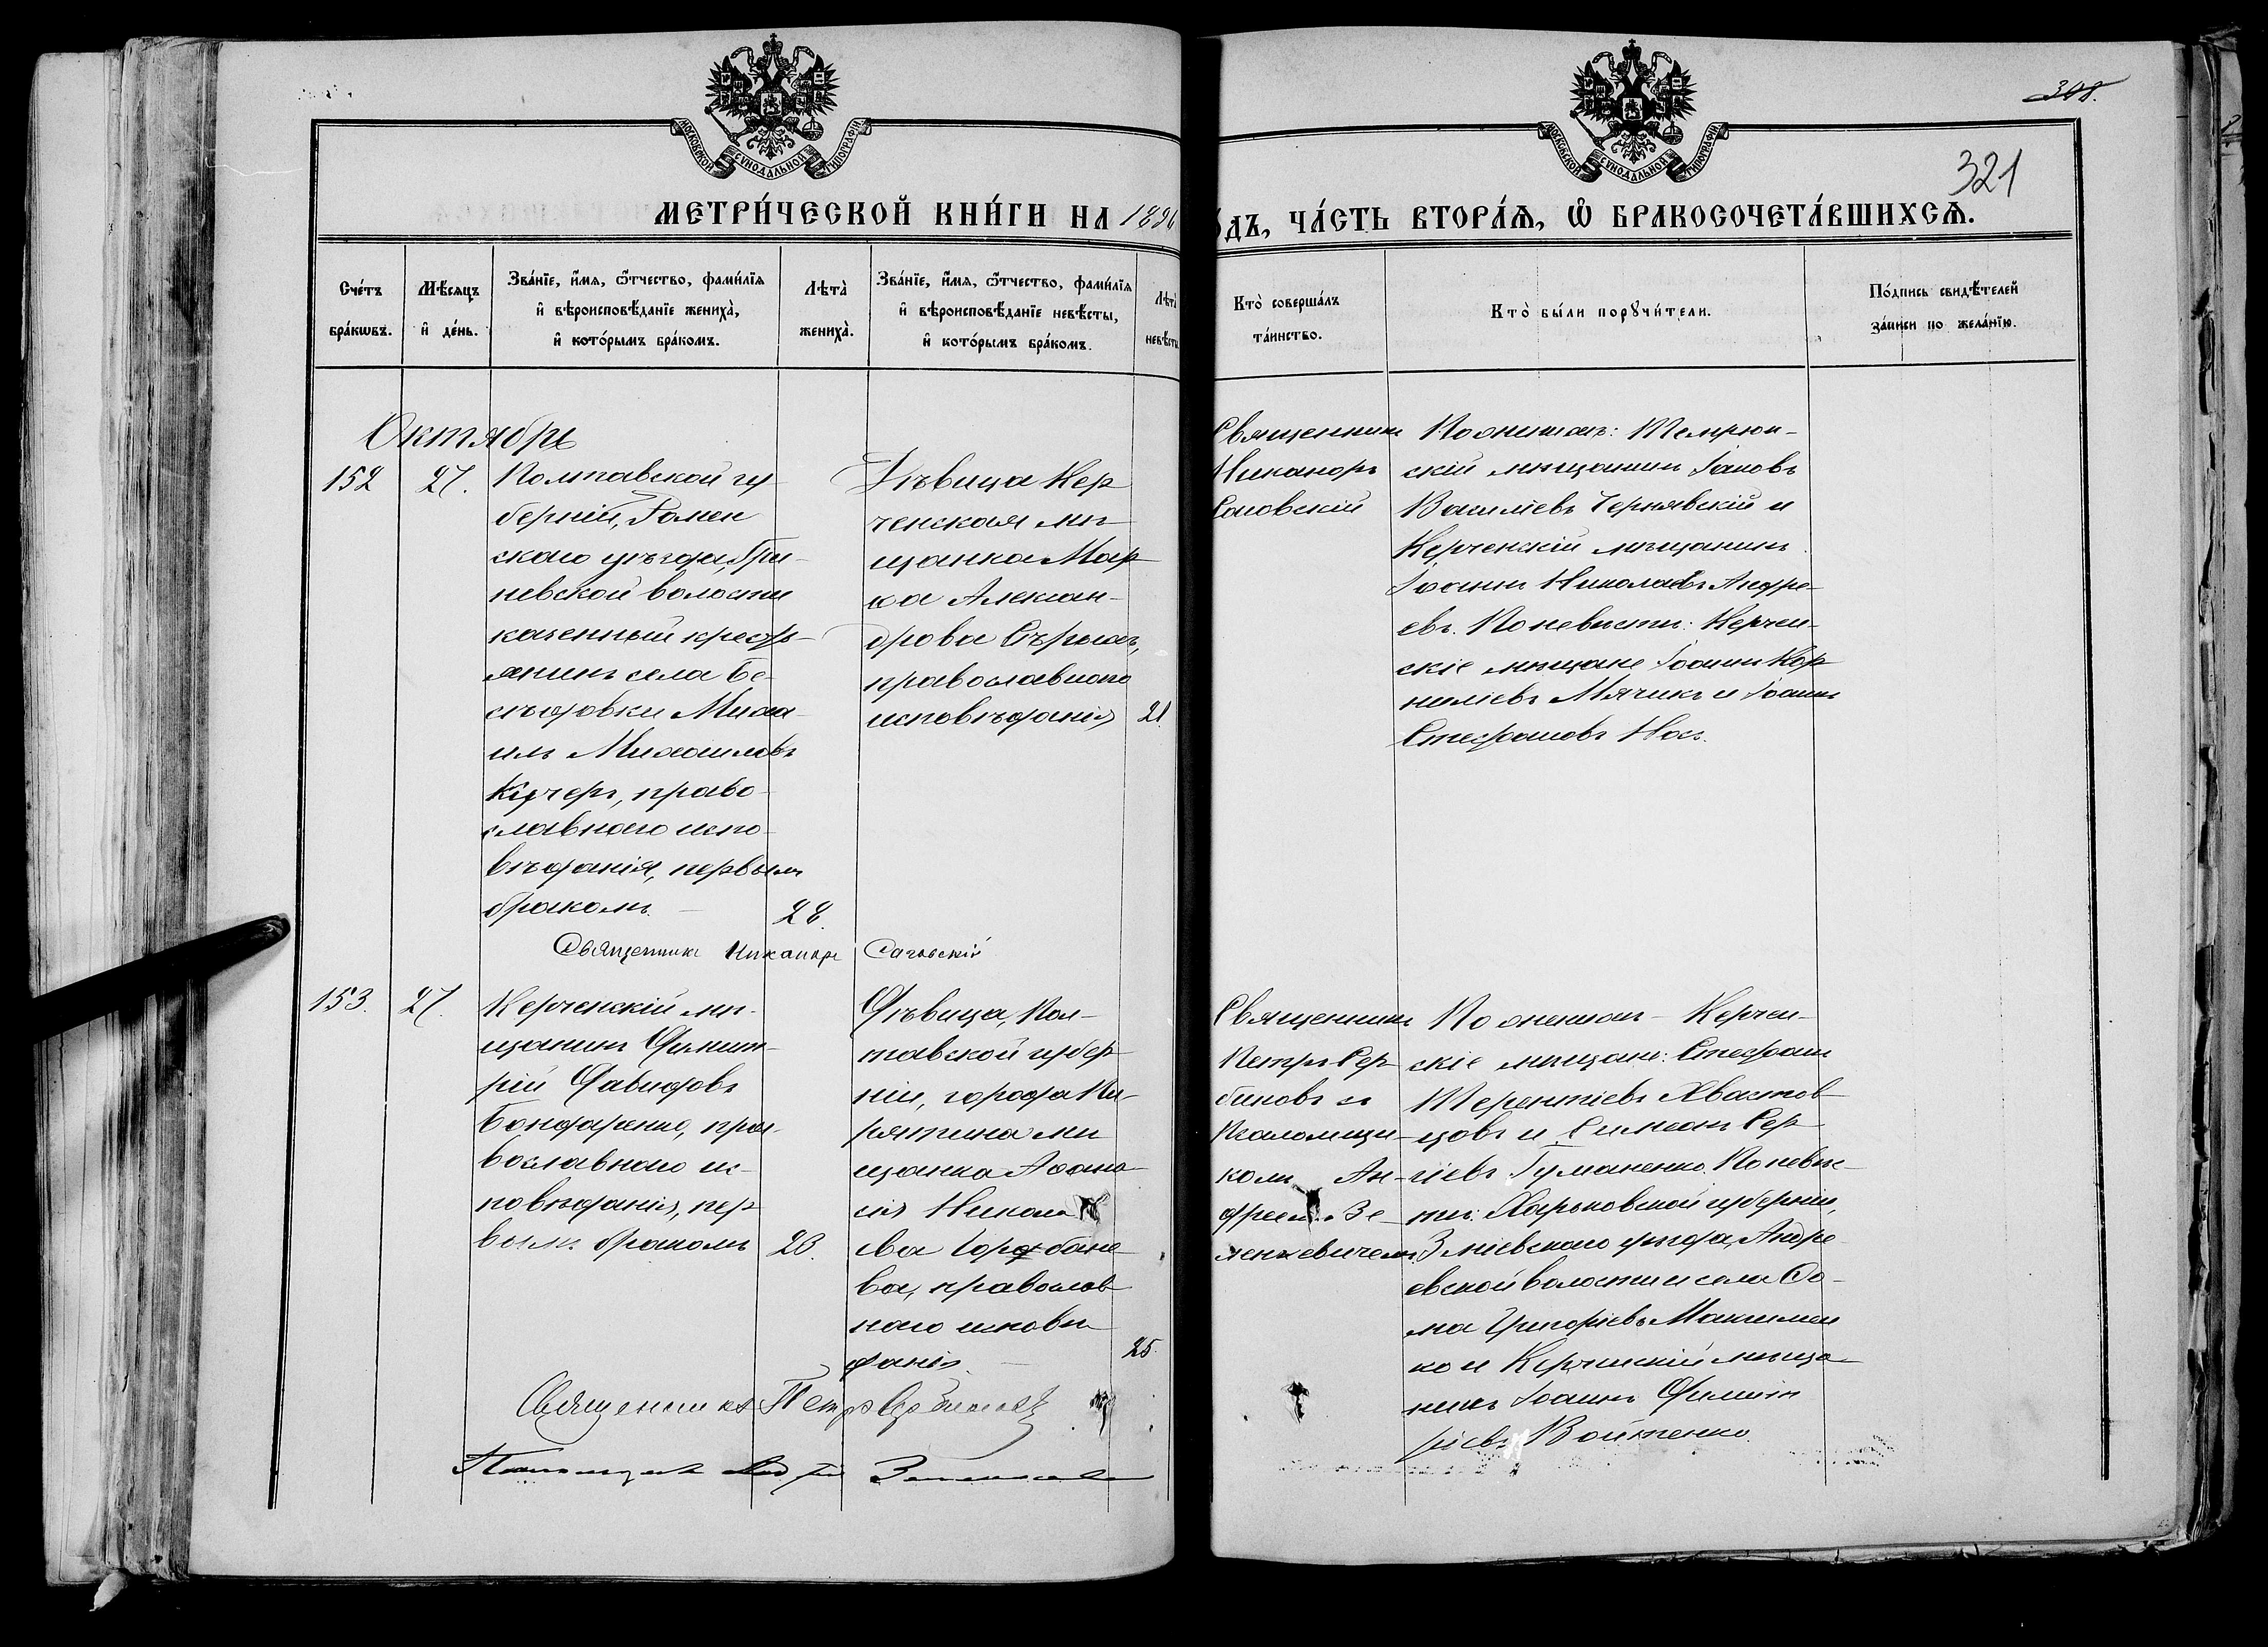 308.
321
МОСКОВСКОЙ СѴНОДАЛЬНОЙ ТИПОГРАФІИ
МОСКОВСКОЙ СѴНОДАЛЬНОЙ ТИПОГРАФІИ
МЕТРИ́ЧЕСКОЙ КНИ́ГИ НА 1896
ДЪ, ЧА́СТЬ ВТОРА́Ѧ, Ѽ БРАКОСОЧЕТА́ВШИХСѦ.
Сче́тъ
бра́кѡвъ.
Мѣ́сяцъ
и҆ де́нь.
Зва́нїе, и҆́мя, ѻ҆́тчество, фами́лїя
и҆ вѣроисповѣ́данїе жениха̀,
и҆ кото́рымъ бра́комъ.
Лѣта̀
жениха̀.
Зва́нїе, и҆́мя, ѻ҆́тчество, фами́лїя
и҆ вѣроисповѣ́данїе невѣ́сты,
и҆ кото́рымъ бра́комъ.
Лѣта̀
невѣ́сты
Кто̀ соверша́лъ
та́инство.
Кто̀ бы́ли порꙋчи́тели.
По́дпись свидѣ́телей
за́писи по жела́нїю.
Октябрь
152
27.
Полтавской гу
берніи, Ромен
скаго уѣзда, Гри-
невской волости
казенный кресть-
янинъ села Бе-
съдовки Миха-
илъ Михаиловъ
Кучеръ, право-
славнаго испо-
вѣданія, первымъ
бракомъ. —
28.
Дѣвица Кер
ченская мѣ-
щанка Мар
ѳа Алексан-
дрова Сѣрыхъ,
православнаго
исповѣданія
21.
Священникъ
Никаноръ
По женихѣ: Темрюк-
скій мѣщанинъ Іаковъ
Василіевъ Чернявскій и
Керченскій мѣщанинъ
Іоаннъ Николаевъ Андре-
евъ. По невѣстѣ: Керчен-
скіе мѣщане Іоаннъ Кор
ниліевъ Мячикъ и Іоаннъ
Стефановъ Носъ.
Священникъ Никаноръ
153.
27.
Керченскій мѣ-
щанинъ Димит-
рій Давидовъ
Бондаренко, пра-
вославнаго ис-
повѣданія, пер
вымъ бракомъ
Дѣвица, Пол-
тавской губер
ніи, города Пи-
рятина мѣ
щанка Аѳана
сія Никола
ева Горбане
ва, православ
наго исповѣ
данія. —
25.
Священникъ
Петръ Сер
биновъ съ
Псаломщи-
комъ Ан-
дреемъ Зе-
ленкевичемъ
По женихѣ — Керчен-
скіе мѣщане: Стефанъ
Терентіевъ Хвастов
цовъ и Симеонъ Сер
гіевъ Гуманенко. По невѣс-
тѣ: Харьковской губерніи,
Зміевскаго уѣзда, Андре
евской волости и села Ѳо-
ма Григоріевъ Максимен
ко и Керченскій мѣща-
нинъ Іоаннъ Димит
ріевъ Войтенко.
Священникъ Петръ Сербиновъ
Псаломщикъ Андрей